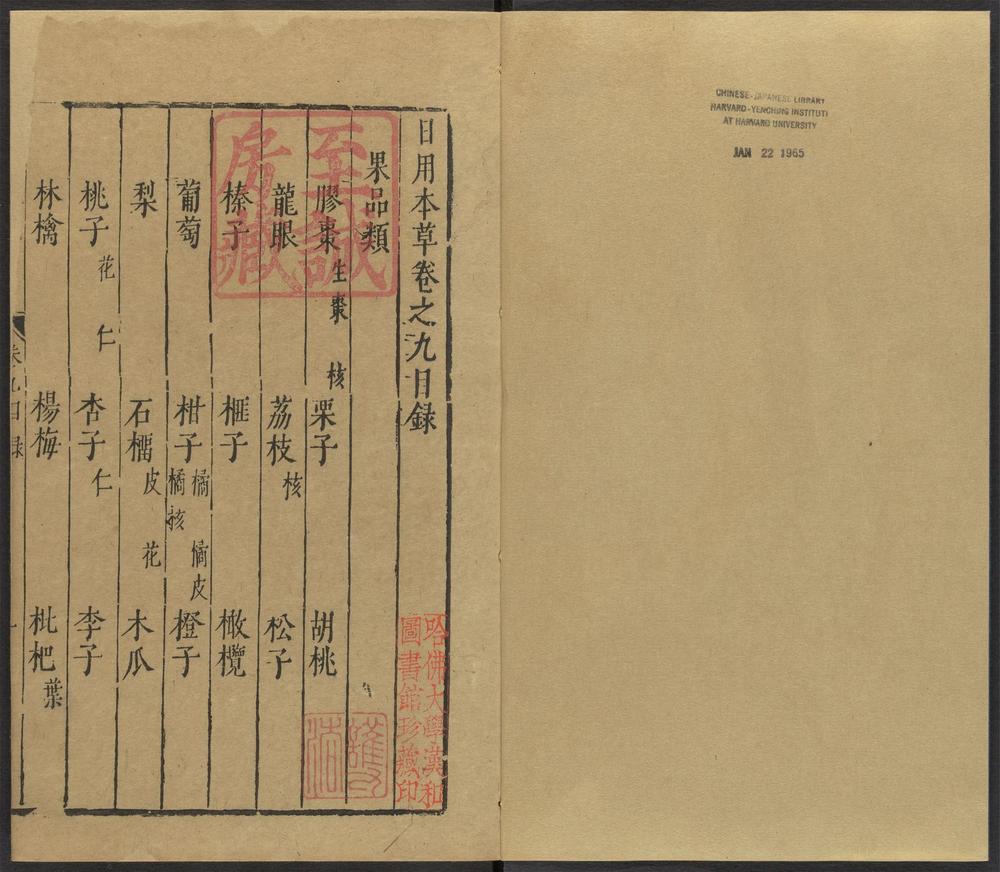 日用本草卷之九目録
果品類
膠棗 生棗 核 栗子 胡桃
龍眼 荔枝 核 松子
榛子 榧子 橄欖
葡萄 柑子 橘 橘皮 橘核 橙子
梨 石榴 皮 花 木瓜
桃子 花 仁 杏子 仁 李子
林檎 楊梅 枇杷 葉
至誠
房藏
哈佛大學漢和
圖書館珍藏印
CHINESE-JAPANESE LIBRARY
HARVARD-YENCHING INSTITUTE
AT HARVARD UNIVERSITY
JAN 22 1965